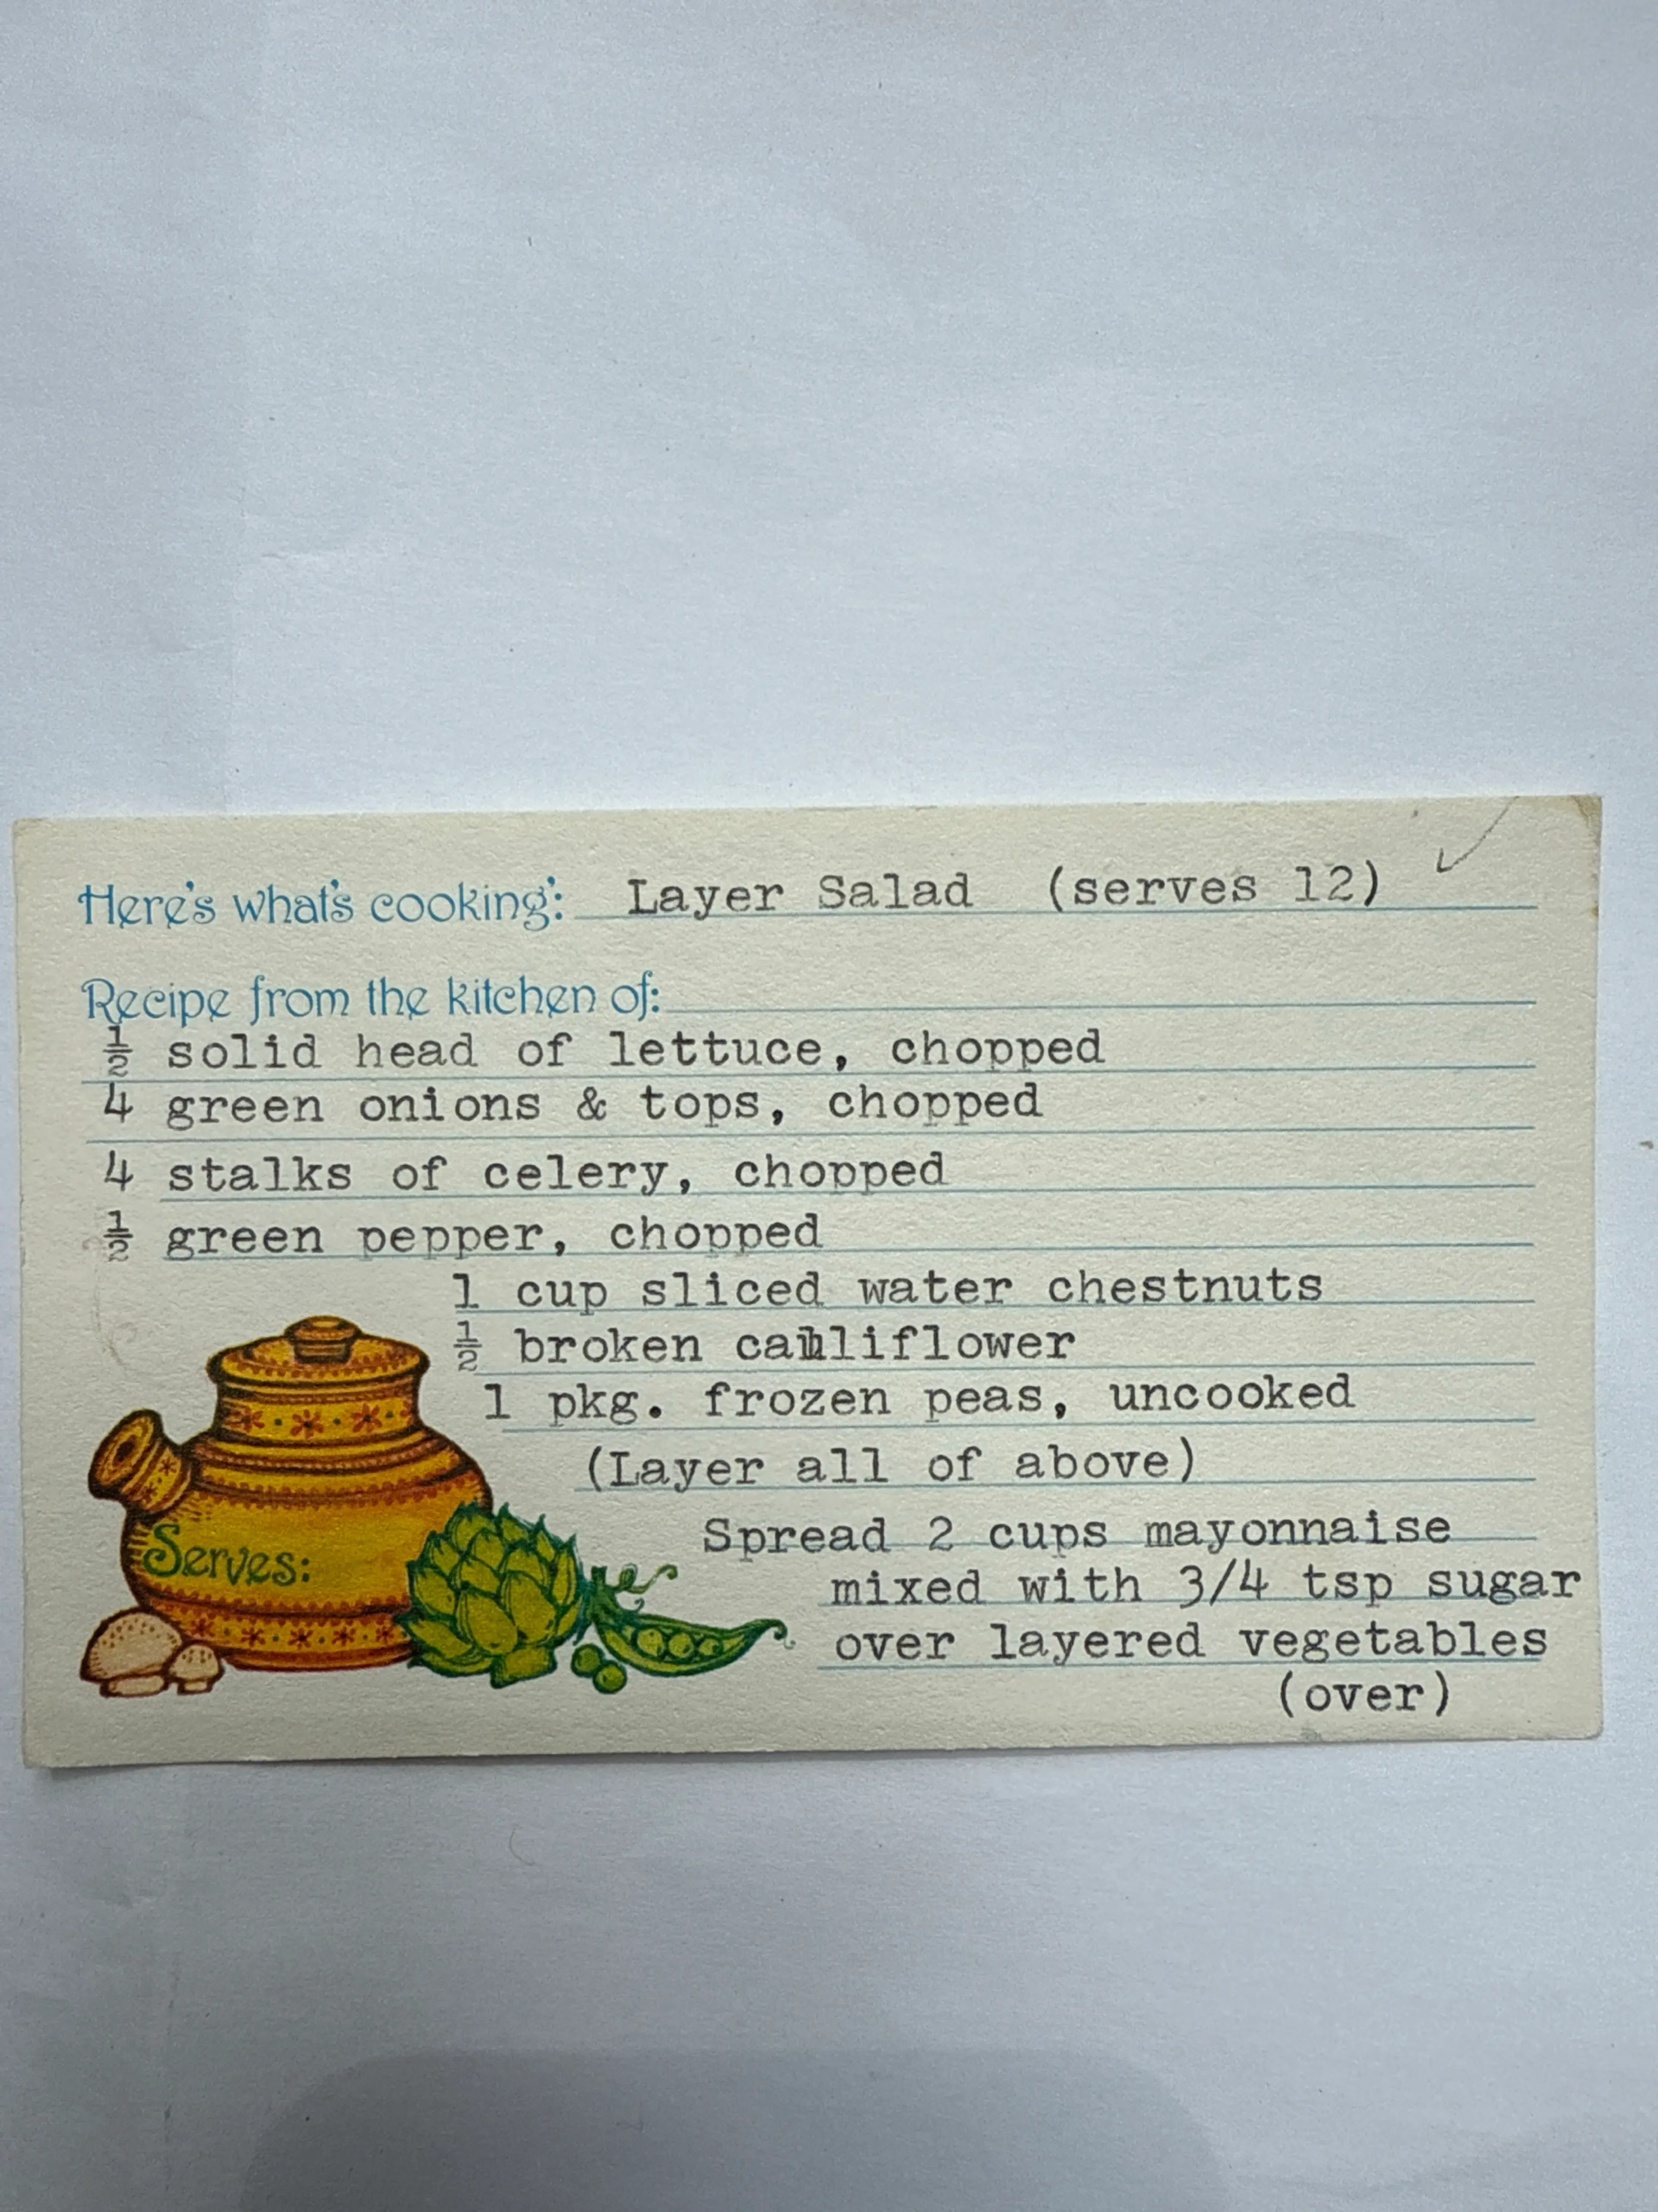 Here's what's cooking: Layer Salad (serves 12)
Recipe from the kitchen of:
½ solid head of lettuce, chopped
4 green onions & tops, chopped
4 stalks of celery, chopped
½ green pepper, chopped
1 cup sliced water chestnuts
½ broken cauliflower
1 pkg. frozen peas, uncooked
(Layer all of above)
Spread 2 cups mayonnaise
mixed with 3/4 tsp sugar
over layered vegetables
(over)
Serves: